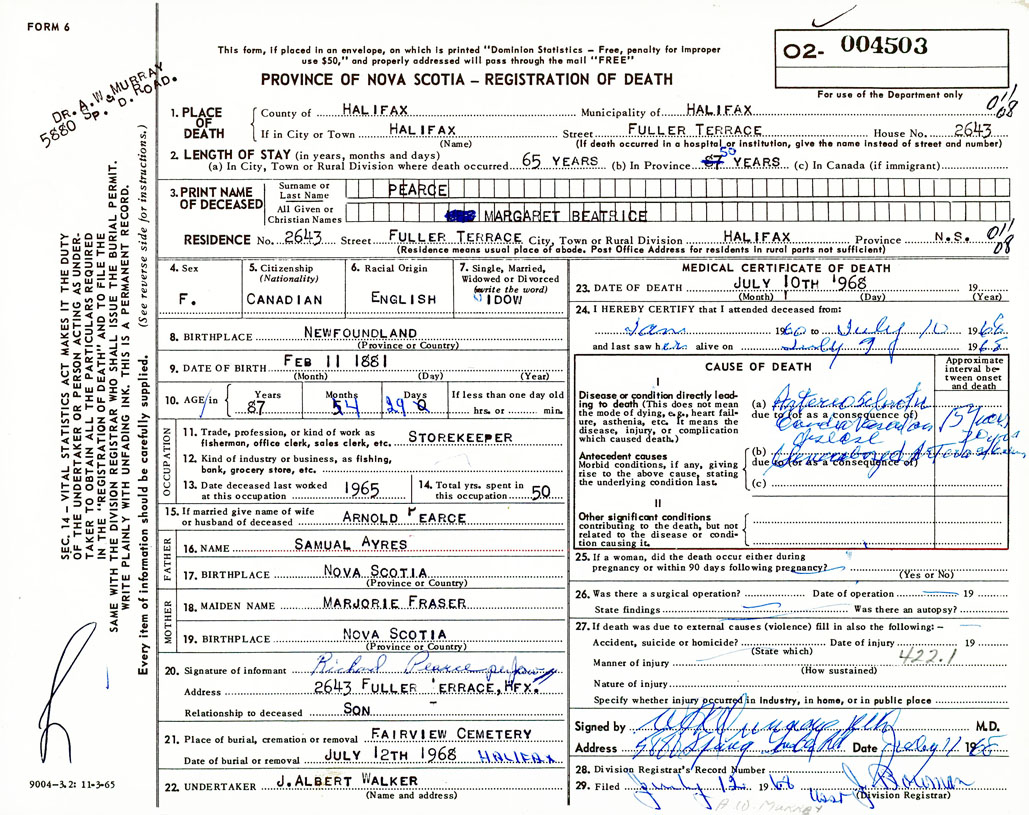 FORM 6
This form, if placed in an envelope, on which is printed "Dominion Statistics – Free, penalty for improper
use $50," and properly addressed will pass through the mail "FREE"
PROVINCE OF NOVA SCOTIA – REGISTRATION OF DEATH
O2- 004503
For use of the Department only
DR. A. W. MURRAY
5880 SP. D. ROAD.
SEC. 14 – VITAL STATISTICS ACT MAKES IT THE DUTY
OF THE UNDERTAKER OR PERSON ACTING AS UNDER-
TAKER TO OBTAIN ALL THE PARTICULARS REQUIRED
IN THE "REGISTRATION OF DEATH" AND TO FILE THE
SAME WITH THE DIVISION REGISTRAR WHO SHALL ISSUE THE BURIAL PERMIT.
WRITE PLAINLY WITH UNFADING INK. THIS IS A PERMANENT RECORD.
Every item of information should be carefully supplied. (See reverse side for instructions.)
1. PLACE OF DEATH
County of HALIFAX Municipality of HALIFAX
011/08
If in City or Town HALIFAX Street FULLER TERRACE House No. 2643
(Name) (If death occurred in a hospital or institution, give the name instead of street and number)
2. LENGTH OF STAY (in years, months and days)
(a) In City, Town or Rural Division where death occurred 65 YEARS (b) In Province 87 50 YEARS (c) In Canada (if immigrant)
3. PRINT NAME OF DECEASED
Surname or Last Name PEARCE
All Given or Christian Names MARGARET BEATRICE
RESIDENCE No. 2643 Street FULLER TERRACE City, Town or Rural Division HALIFAX Province N.S. 011/08
(Residence means usual place of abode. Post Office Address for residents in rural parts not sufficient)
4. Sex
F.
5. Citizenship (Nationality)
CANADIAN
6. Racial Origin
ENGLISH
7. Single, Married, Widowed or Divorced (write the word)
WIDOW
8. BIRTHPLACE NEWFOUNDLAND
(Province or Country)
9. DATE OF BIRTH FEB 11 1881
(Month) (Day) (Year)
10. AGE in Years 87 Months 4 Days 29 If less than one day old hrs. or min.
OCCUPATION
11. Trade, profession, or kind of work as
fisherman, office clerk, sales clerk, etc. STOREKEEPER
12. Kind of industry or business, as fishing,
bank, grocery store, etc.
13. Date deceased last worked
at this occupation 1965
14. Total yrs. spent in
this occupation 50
15. If married give name of wife
or husband of deceased ARNOLD PEARCE
FATHER
16. NAME SAMUAL AYRES
17. BIRTHPLACE NOVA SCOTIA
(Province or Country)
MOTHER
18. MAIDEN NAME MARJORIE FRASER
19. BIRTHPLACE NOVA SCOTIA
(Province or Country)
20. Signature of informant Richard Pearce per
Address 2643 FULLER TERRACE, HFX.
Relationship to deceased SON
21. Place of burial, cremation or removal FAIRVIEW CEMETERY
Date of burial or removal JULY 12TH 1968 HALIFAX
22. UNDERTAKER J. ALBERT WALKER
(Name and address)
9004–3.2: 11-3-65
MEDICAL CERTIFICATE OF DEATH
23. DATE OF DEATH JULY 10TH 1968 19
(Month) (Day) (Year)
24. I HEREBY CERTIFY that I attended deceased from:
Jan 1960 to July 10 1968
and last saw her alive on July 9 1968
CAUSE OF DEATH
Approximate interval between onset and death
I
Disease or condition directly lead-
ing to death (This does not mean
the mode of dying, e.g., heart fail-
ure, asthenia, etc. It means the
disease, injury, or complication
which caused death.)
(a) Arteriosclerotic
due to (or as a consequence of)
Cardiovascular
disease
15 years
Antecedent causes
Morbid conditions, if any, giving
rise to the above cause, stating
the underlying condition last.
(b) Generalized Arteriosclerosis
due to (or as a consequence of)
years
(c)
II
Other significant conditions
contributing to the death, but not
related to the disease or condi-
tion causing it.
25. If a woman, did the death occur either during
pregnancy or within 90 days following pregnancy?
(Yes or No)
26. Was there a surgical operation? Date of operation 19
State findings Was there an autopsy?
27. If death was due to external causes (violence) fill in also the following: –
Accident, suicide or homicide? Date of injury 19
(State which)
422.1
Manner of injury
(How sustained)
Nature of injury
Specify whether injury occurred in Industry, in home, or in public place
Signed by A W Murray M.D.
Address 5880 Spring Garden Rd Date July 11 1968
28. Division Registrar's Record Number
29. Filed July 12 1968 J. Bowman
(Division Registrar)
A W. MURRAY